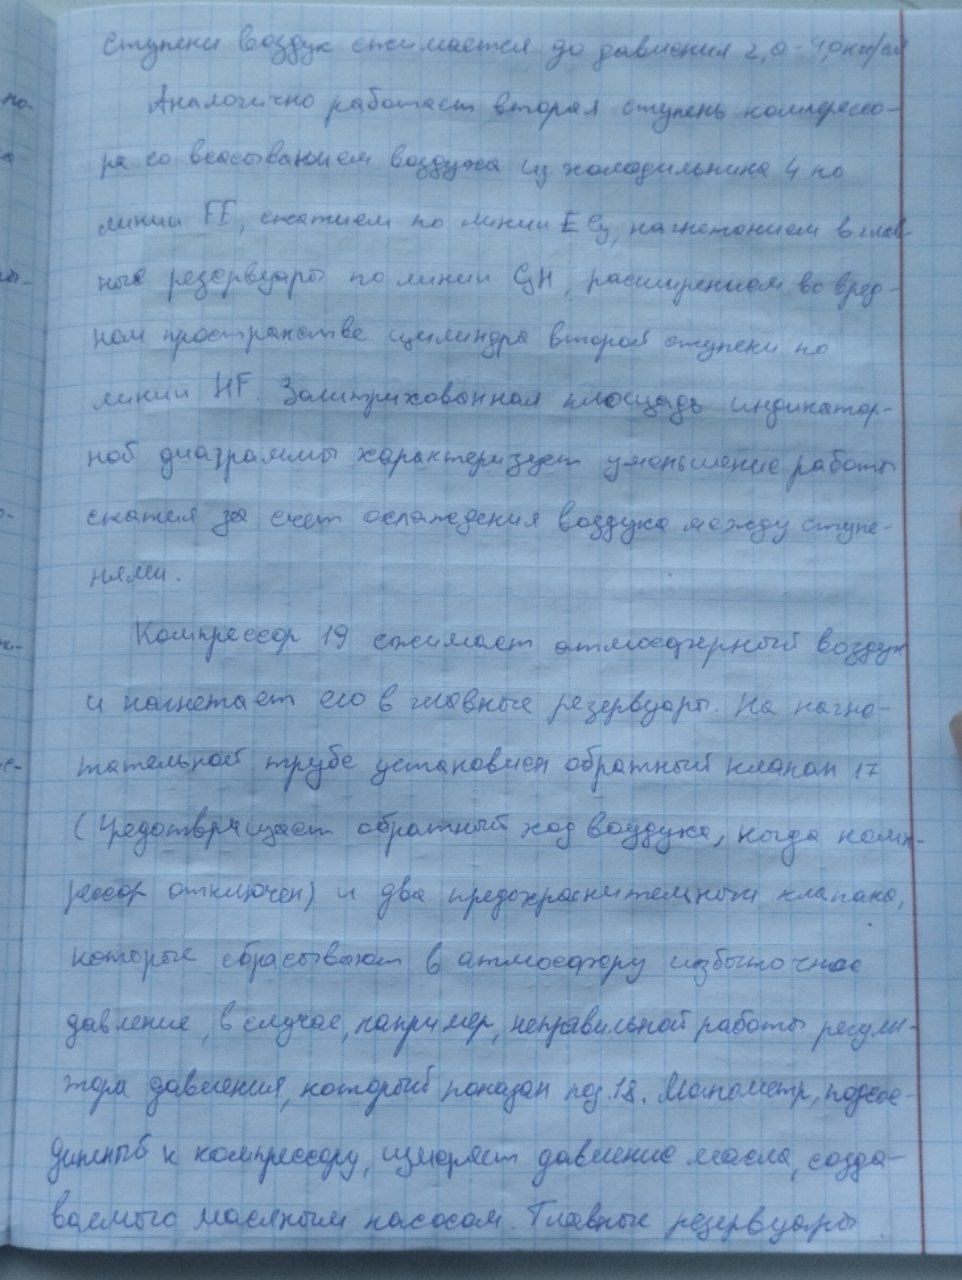 ступени воздух сжимается до давления 2,0-4,0 кг/см
Аналогично работает вторая ступень компрессо-
ра со всасыванием воздуха из холодильника 4 по
линии FE, сжатием по линии EG, нагнетанием в глав-
ные резервуары по линии GH, расширением во вред-
ном пространстве цилиндра второй ступени по
линии HF. Заштрихованная площадь индикатор-
ной диаграммы характеризует уменьшение работы
сжатия за счет охлаждения воздуха между ступе-
нями.
Компрессор 19 сжимает атмосферный воздух
и нагнетает его в главные резервуары. На нагне-
тательной трубе установлен обратный клапан 17
(предотвращает обратный ход воздуха, когда комп-
рессор отключен) и два предохранительных клапана,
которые сбрасывают в атмосферу избыточное
давление, в случае, например, неправильной работы регуля-
тора давления, который показан поз. 18. Манометр, подсое-
диненный к компрессору, измеряет давление масла, созда-
ваемого масляным насосом. Главные резервуары
по-